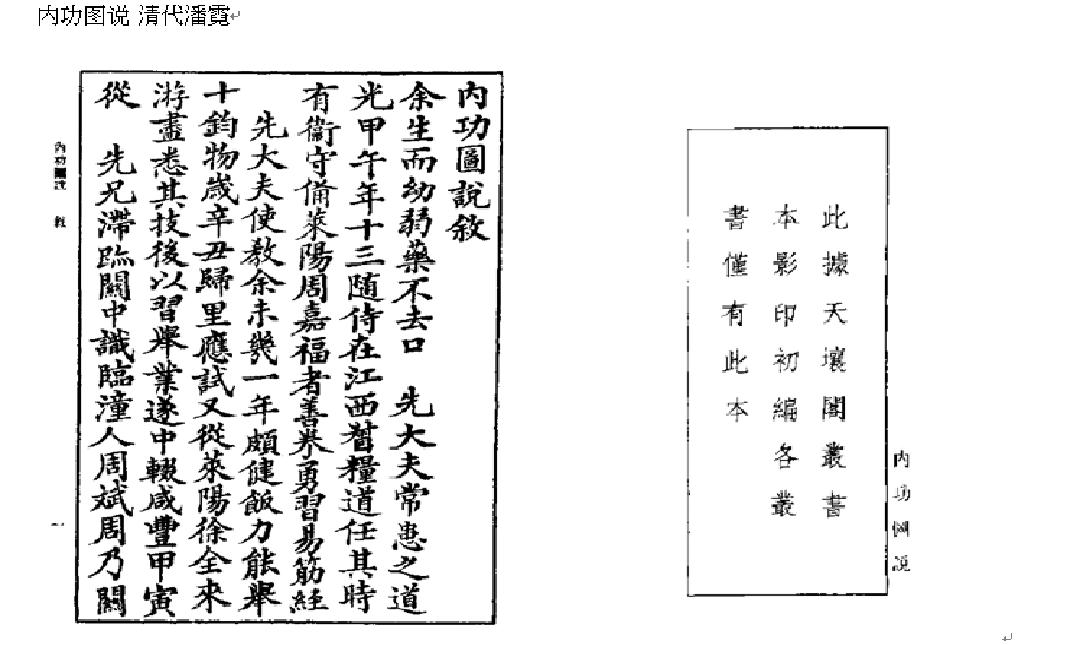 内功图说 清代潘霨
內功圖說敘
余生而幼弱藥不去口 先大夫常患之道
光甲午年十三随侍在江西督糧道任其時
有衞守備萊陽周嘉福者善拳勇習易筋經
先大夫使教余未幾一年頗健飯力能舉
十鈞物歲辛丑歸里應試又從萊陽徐全來
游盡悉其技後以習舉業遂中輟咸豐甲寅
從 先兄滯跡關中識臨潼人周斌周乃關
內功圖說 敘
一
此據天壤閣叢書
本影印初編各叢
書僅有此本
內功圖說